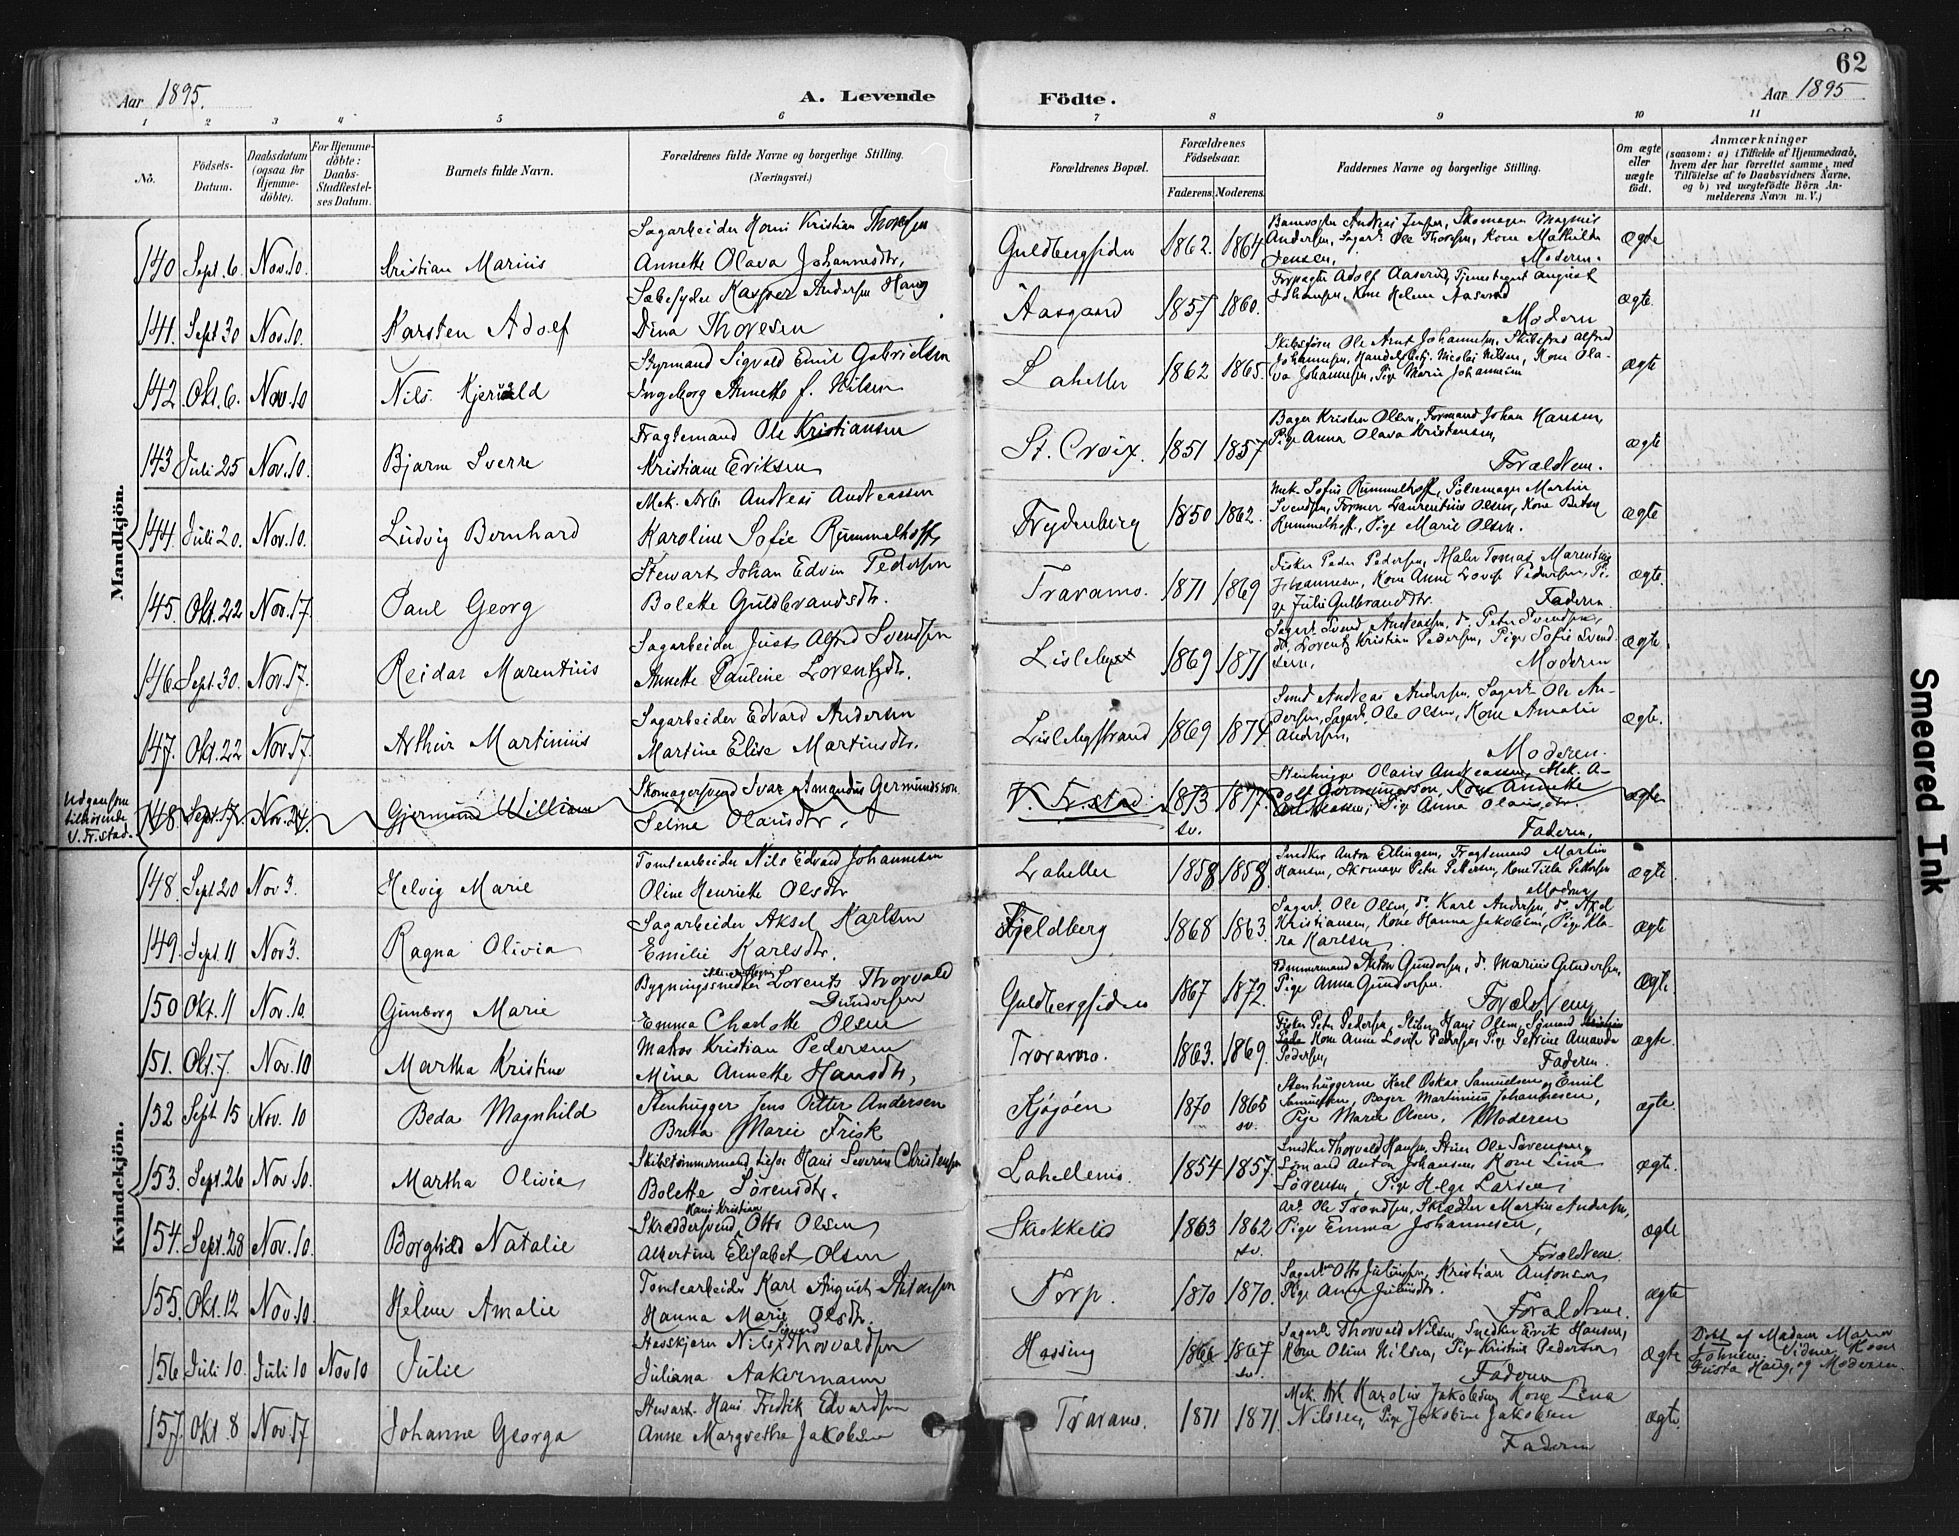 Aar 1895.
A. Levende
Födte.
62
Aar 1895
1 2 3 4 5 6 7 8 9 10 11
No.
Födsels-Datum.
Daabsdatum (ogsaa for Hjemme-döbte).
For Hjemme-döbte: Daabs-Stadfæstel-ses Datum.
Barnets fulde Navn.
Forældrenes fulde Navne og borgerlige Stilling.
(Næringsvei.)
Forældrenes Bopæl.
Forældrenes Födselsaar.
Faderens. Moderens.
Faddernes Navne og borgerlige Stilling.
Om ægte eller uægte födt.
Anmærkninger
(saasom: a) i Tilfælde af Hjemmedaab, hvem der har forrettet samme, med Tilföielse af to Daabsvidners Navne, og b) ved uægtefödte Börn An-melderens Navn m. V.)
Mandkjön.
140 Sept. 6. Nov. 10. Kristian Marius
Sagarbeider Hans Kristian Thoresen
Annette Olava Johannesdtr.
Guldbergsiden 1862. 1864
Andersen, Sagarb. Ole Thoresen, Kone Mathilde
Jensen, Moderen.
ægte
141. Sept 30 Nov. 10. Karsten Adolf
Sæbesyder Kasper Andersen Haug
Dina Thoresen
Aasgaard 1857 1860.
Forpagter Adolf Aaserud, Tjenestegut August
Johansen, Kone Helene Aaserud
Moderen
ægte.
142. Okt. 6. Nov. 10 Nils Kjerulf
Styrmand Sigvald Emil Gabrielsen
Ingeborg Annette f. Nilsen
Lahellen 1862 1865.
Skibsförer Ole Arnt Johannesen, Skibsfred Alfred
Johannesen, Handelsbetj. Nicolai Nilsen, Kone Ola-
va Johannesen, Pige Marie Johannesen
ægte
143 Juli 25 Nov. 10. Bjarne Sverre
Fragtemand Ole Kristiansen
Kristiane Eriksen
St. Croix. 1851 1857
Bager Kristen Olsen, Formand Johan Hansen,
Pige Anna Olava Kristensen,
Forældrene.
ægte
144. Juli 20. Nov. 10. Ludvig Bernhard
Mek. Arb. Andreas Andreassen
Karoline Sofie Rummelhoff
Frydenberg 1850 1862.
Mek. Sofus Rummelhoff, Pölsemager Martin
Svendsen, Former Laurentius Olsen, Kone Betsy
Rummelhoff, Pige Marie Olsen.
ægte
145. Okt. 22 Nov. 17. Paul Georg
Stewart Johan Edvin Pedersen
Bolette Guldbrandsdtr.
Traramo. 1871 1869
Fisker Peder Pedersen, Maler Tomas Marentius
Johannesen, Kone Anne Lovise Pedersen, Pi-
ge Julie Gulbrandsdtr. Faderen
ægte.
146 Sept. 30. Nov. 17. Reidar Marentius
Sagarbeider Just Alfred Svendsen
Annette Pauline Lorentzdtr.
Lisleby 1869 1871
Sagarb. Svend Andreassen, d. Peter Svendsen,
do. Lorentz Kristian Pedersen, Pige Sofie Svend-
sen, Moderen
ægte.
147. Okt. 22 Nov. 17. Arthur Martinius
Sagarbeider Edvard Andersen
Martine Elise Martinsdtr.
Lislebystrand 1869 1874
Smed Andreas Andersen, Sagarb. Ole An-
dersen, Sagarb. Ole Olsen, Kone Amalie
Andersen,
Moderen.
ægte.
Udgaar som tilhörende V. Fr.stad.
148. Sept. 17. Nov. 24. Gjermund William
Skomagersvend Ivar Amandus Germundsson
Selma Olausdtr.
V. Fr.stad. 1873 sv. 1877
Stenhugger Olaves Andreassen, Mek. A-
dolf Germundsson, Kone Annette
Andreassen, Pige Anna Olausdtr.
Faderen,
ægte
Kvindekjön.
148. Sept 20 Nov 3. Helvig Marie
Tomtearbeider Nils Edvard Johannesen
Oline Henriette Olsdtr
Lahellen 1858 1858.
Snedker Anton Ellingsen, Fragtemand Martin
Hansen, Skomager Peter Pettersen, Kone Tilla Pettersen
Moderen
ægte
149. Sept. 11 Nov 3. Ragna Olivia
Sagarbeider Aksel Karlsen
Emilie Karlsdtr.
Fjeldberg 1868 1863.
Sagarb. Ole Olsen, do. Karl Andersen, do. Axel
Kristiansen, Kone Hanna Jakobsen, Pige Kla-
ra Karlsen
ægte
150 Okt. 11 Nov. 10. Gunborg Marie
Bygningssnedker Lorents Thorvald
Gundersen
Emma Charlotte Olsen
Guldbergsiden 1867 1872.
Tömmermand Anton Gundersen, d. Marius Gundersen,
Pige Anna Gundersen.
Forældrene
ægte.
151. Okt. 7. Nov. 10 Martha Kristine
Matros Kristian Pedersen
Mina Annette Hansdtr,
Traramo. 1863. 1869.
Fisker Peter Pedersen, Hans Olsen, Sömand
Kone Anne Lovise Pedersen, Pige Petrine Amanda
Pedersen, Faderen.
ægte.
152 Sept. 15 Nov. 10 Beda Magnhild
Stenhugger Jens Petter Andersen
Brita Marie Frisk
Kjøgöen 1870 1865 sv.
Stenhuggerne Karl Oskar Samuelsen og Emil
Samuelsen, Bager Martinius Johannesen,
Pige Marie Olsen, Moderen
ægte.
153. Sept. 26 Nov. 10. Martha Olivia
Skibstømmermand Hans Severin Christensen
Bolette Sörensdtr.
Lahellens. 1854 1857.
Snedker Thorvald Hansen, Ole Sörensen,
Sömand Anton Johansen, Kone Lina
Sörensen, Pige Helga Larsen,
ægte.
154. Sept. 28 Nov. 10. Borghild Natalie
Hans Kristian
Skræddersvend Otto Olsen
Albertine Elisabet Olsen
Skakkelid 1863 1862 sv.
Arb. Ole Trondsen, Skrædder Martin Andersen,
Pige Emma Johannesen,
Forældrene
ægte
155. Okt. 12 Nov. 10 Helene Amalie
Tomtearbeider Karl August Antonsen
Hanna Marie Olsdtr.
Torp. 1870 1870.
Sagarb. Otto Juliussen, Kristian Antonsen,
Pige Anna Juliusdtr.
Forældrene.
ægte
156 Juli 10. Juli 10 Nov 10 Julie
Havskjærer Nils Thorvaldsen
Juliana Aakermann
Hassing 1866 1867 sv.
Sagarb. Thorvald Nilsen, Snedker Erik Hansen,
Kone Oline Nilsen, Pige Kristine Pedersen
Faderen
ægte
Döbt af Madam Maren
Johnsen. Vidner Kone
Gusta Haug, og Moderen.
157. Okt. 8 Nov. 17 Johanne Georga
Stewart Hans Fredrik Edvardsen
Anne Margrethe Jakobsen
Traramo. 1871 1871.
Mek. Arb. Karolius Jakobsen, Kone Lina
Nilssen, Pige Jakobine Jakobsen
Faderen
ægte.
Smeared Ink